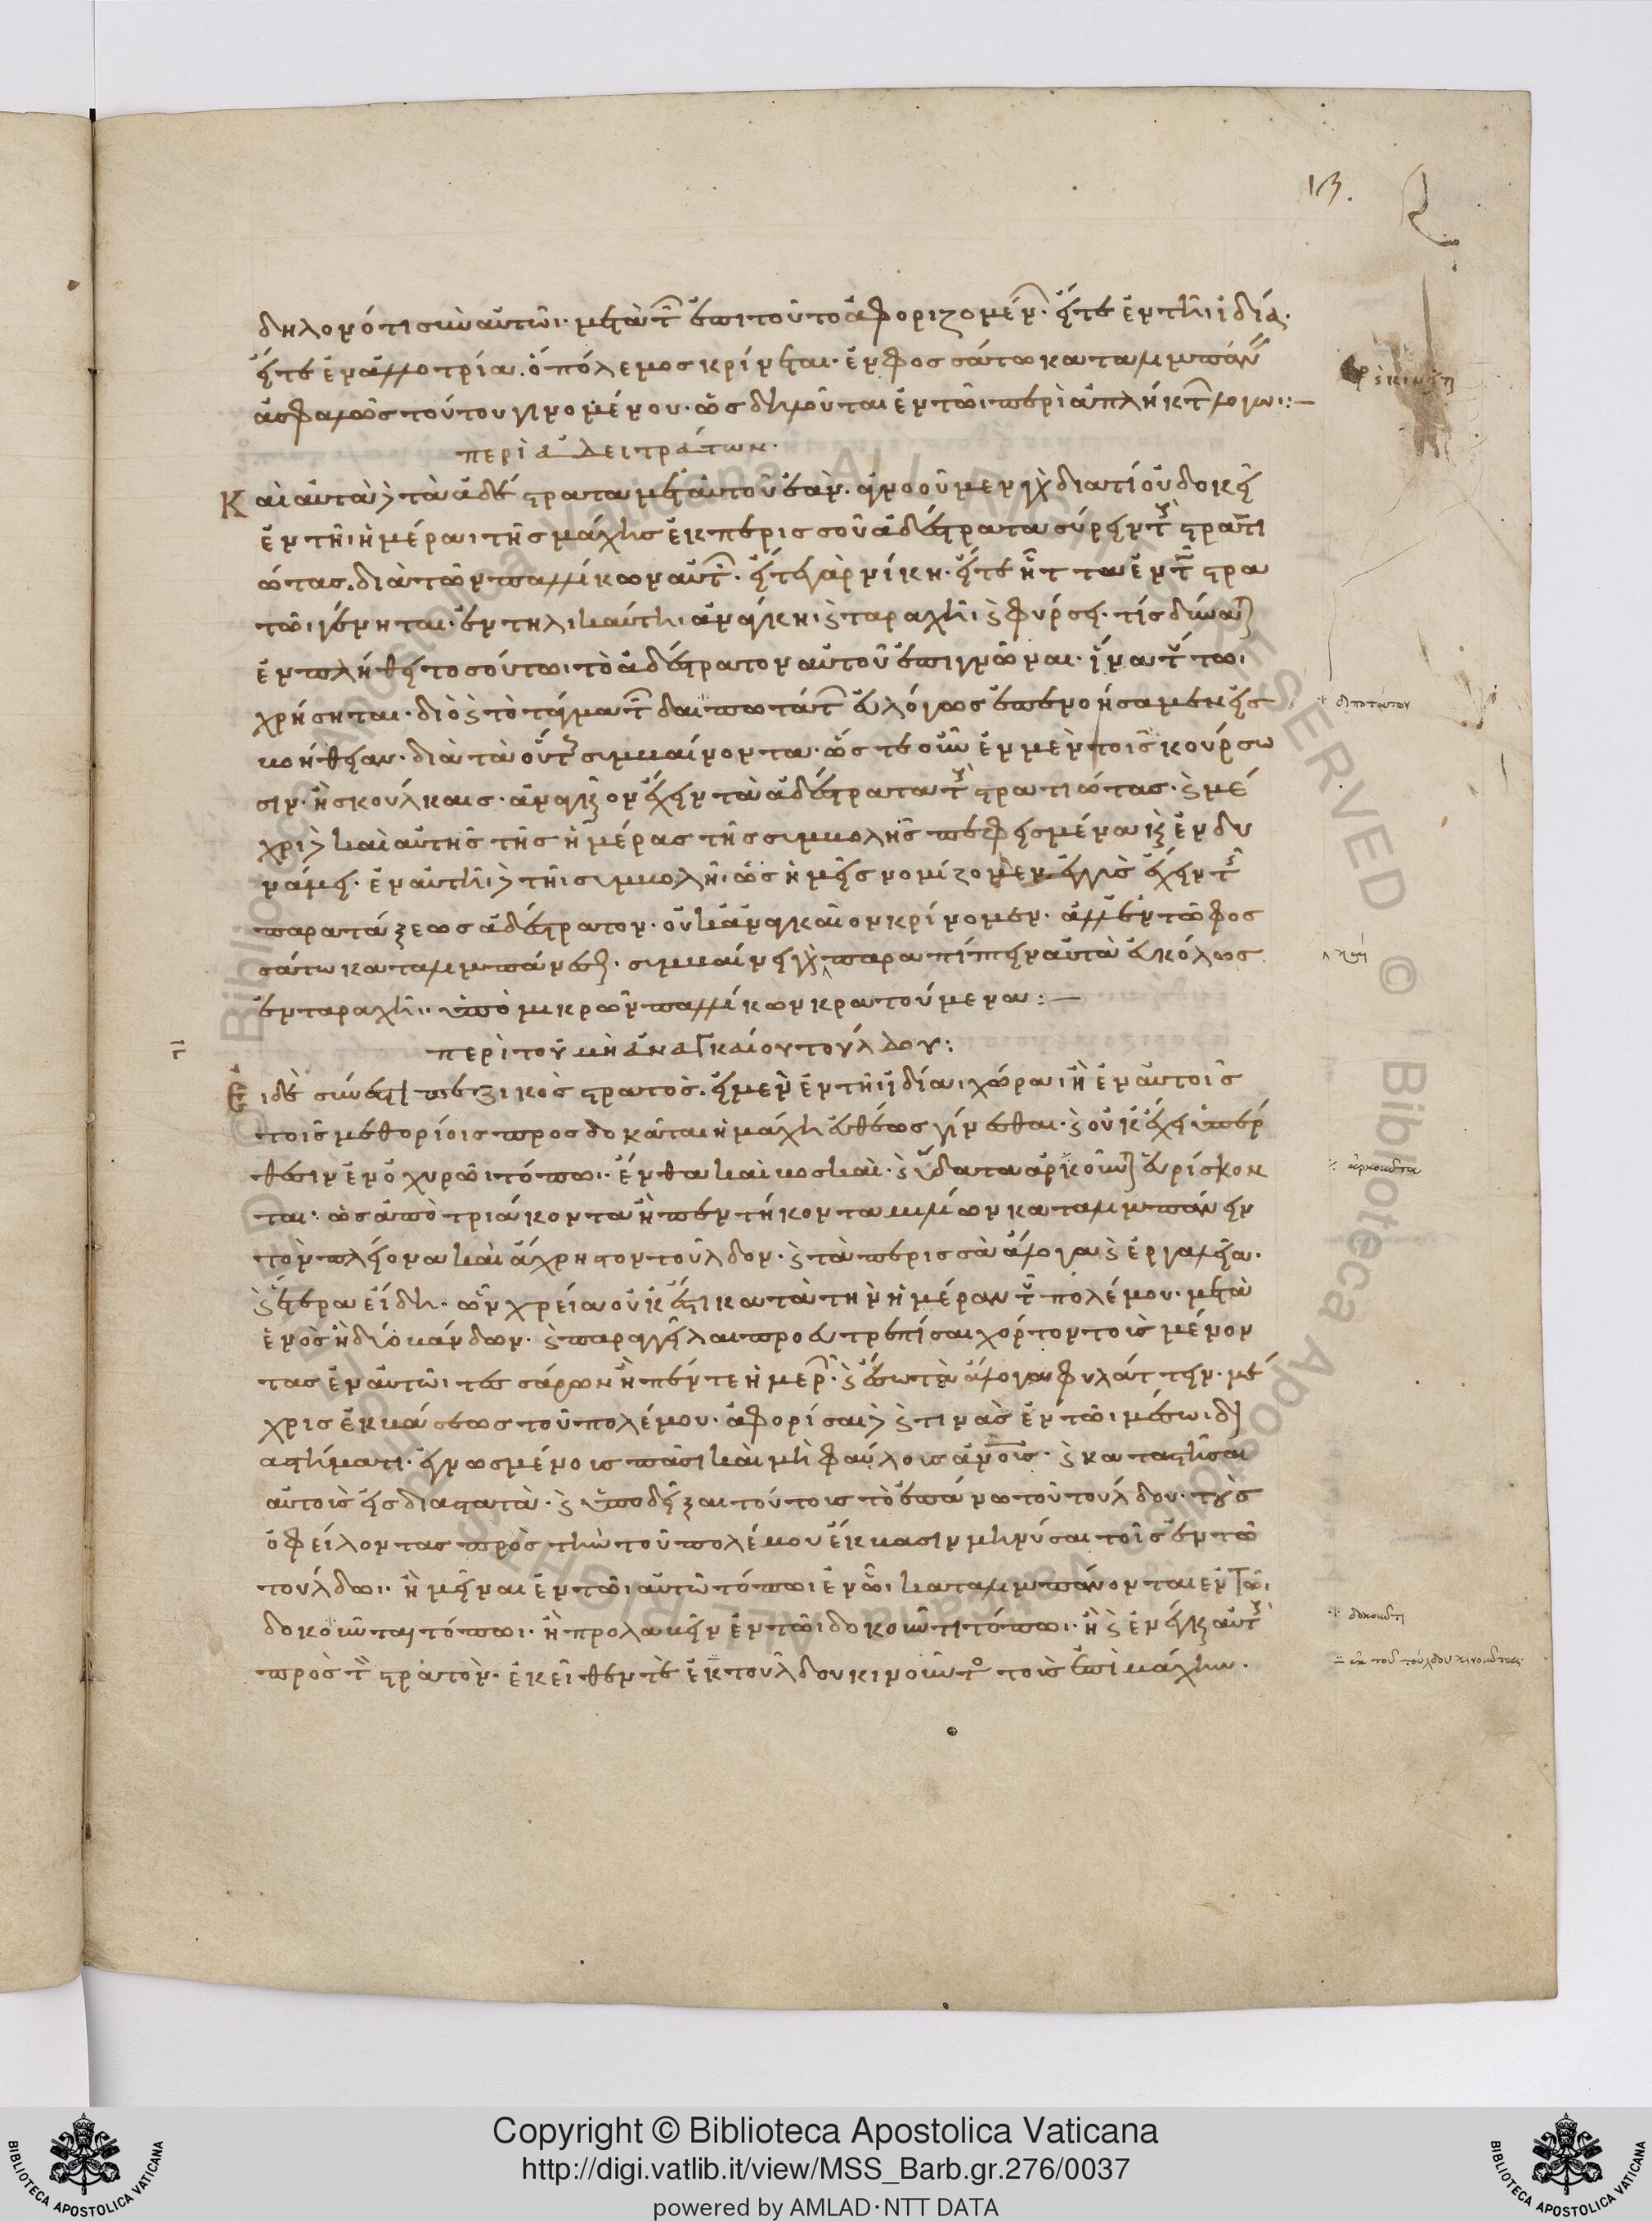 13.
δηλονότι σὺν αὐτῶι· μετὰ τ(ῶν) ἐπὶ τοῦτο ἀφοριζομέν(ων)· εἴτε ἐν τῆι ἰδίαι·
εἴτε ἐν ἀλλοτρίαι ὁ πόλεμος κρίνεται· ἐν φοσσάτω καταλιμπάνειν
ἀσφαλῶς τούτου γινομένου· ὡς δηλοῦται ἐν τῶι περὶ ἀπλήκτ(ων) λόγω:—
περὶ ἀδεστράτων·
Καὶ αὐτὰ δὲ τὰ ἀδέστρατα μετ' αὐτοῦ ἐᾶν· ἀγνοοῦμεν γὰρ διατί οὐ δοκεῖ
ἐν τῆι ἡμέραι τῆς μάχης ἐκ περισσοῦ ἀδέστρατα σύρειν τοὺς στρατι
ώτας· διὰ τῶν παλλίκων αὐτῶν· εἴτε γὰρ νίκη· εἴτε ἧττα ἐν τῶ στρα
τῶι γένηται· ἐν τηλικαύτη ἀνάγκη καὶ ταραχῆ καὶ φύρσει· τίς δύναται
ἐν πλήθει τοσούτωι· τὸ ἀδέστρατον αὐτοῦ ἐπιγνῶναι· ἵνα τούτωι
χρήσηται· διὸ καὶ τὸ τάγμα τῶν δαιποτάτων εὐλόγως ἐπενοήσαμεν εἰσ
κομηθῆναι· διὰ τὰ οὕτως συμβαίνοντα· ὥστε οὖν ἐν μὲν τοῖς κούρσω
σιν· ἢ σκούλκαις· ἀναγκαῖον ἔχειν τὰ ἀδέστρατα τοὺς στρατιώτας· καὶ μέ
χρι δὲ καὶ αὐτῆς τῆς ἡμέρας τῆς συμβολῆς πεφεισμένα καὶ ἐν δυ
νάμει· ἐν αὐτῆι δὲ τῆι συμβολῆι ὡς ἡμεῖς νομίζομεν
παρατάξεως ἀδέστρατον· οὐκ ἀναγκαῖον κρίνομεν· ἀλλ' ἐν τῶ φοσ
σάτω καταλιμπάνεσθαι· συμβαίνει γὰρ παραπίπτειν αὐτὰ εὐκόλως
ἐν ταραχῆι· ὑπὸ μικρῶν παλλίκων κρατούμενα:—
περὶ τοῦ μὴ ἀναγκαίου τούλδου:
Εἰ δὲ σύνεστι πεζικὸς στρατός· εἰ μὲν ἐν τῆι ἰδίαι χώραι ἢ ἐν αὐτοῖς
τοῖς μεθορίοις προσδοκᾶται ἡ μάχη εὐθέως γίνεσθαι· καὶ οὐκ ἔχει ὑπέρ
θεσιν ἐν ὀχυρῶι τόπωι· ἔνθα καὶ βοσκαὶ καὶ ὕδατα ἀρκοῦντα εὑρίσκον
ται· ὡς ἀπὸ τριάκοντα ἢ πεντήκοντα μιλίων καταλιμπάνειν
τὸν πλείονα καὶ ἄχρηστον τοῦλδον· καὶ τὰ περισσὰ ἄλογα καὶ ἐργαλεῖα·
καὶ ἕτερα εἴδη· ὧν χρεία οὐκ ἔστι κατὰ τὴν ἡμέραν τοῦ πολέμου· μετὰ
ἑνὸς ἢ δύο βάνδων· καὶ παραγγεῖλαι προευτρεπίσαι χόρτον τοῖς μένον
τας ἐν αὐτῶι τεσσάρων ἢ πέντε ἡμερ(ῶν)· καὶ ἔσω τὰ ἄλογα φυλάττειν· μέ
χρις ἐκβάσεως τοῦ πολέμου· ἀφορίσαι δὲ καί τινας ἐν τῶι μέσωι δι
αστήματι· ἐγνωσμένοις πᾶσι καὶ μὴ φαύλοις ἀνοις· καὶ καταστῆσαι
αὐτοῖς εἰς διαστατὰ· καὶ ὑποδεῖξαι τούτοις τὸ ἐπάνω τοῦ τούλδου· τοὺς
ὀφείλοντας πρὸς τὴν τοῦ πολέμου ἔκβασιν μηνύσαι τοῖς ἐν τῶ
τούλδωι· ἢ μεῖναι ἐν τῶι αὐτῶ τόπωι ἐν ὧι καταλιμπάνονται ἐν τῶι
δοκοῦντι τόπωι· ἢ προλαβεῖν ἐν τῶι δοκοῦντι τόπωι· ἢ καὶ ἐνεῖγκαι αὐτοὺς
πρὸς τὸν στρατόν· ἐκεῖθέν τε ἐκ τοῦλδου κινοῦντο τοῖς ἐπὶ μάχην·
δεποτάτων
ἀρκοῦντα
δοκοῦντι
ἐκ τοῦ τούλδου κινοῦντας
Copyright © Biblioteca Apostolica Vaticana
http://digi.vatlib.it/view/MSS_Barb.gr.276/0037
powered by AMLAD·NTT DATA
BIBLIOTECA APOSTOLICA VATICANA
BIBLIOTECA APOSTOLICA VATICANA